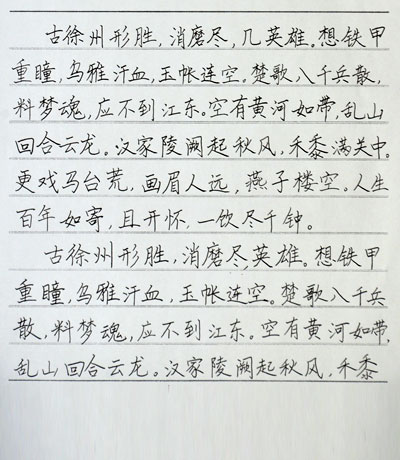 古徐州形胜，消磨尽，几英雄。想铁甲
重瞳，乌雅汗血，玉帐连空。楚歌八千兵散，
料梦魂，应不到江东。空有黄河如带，乱山
回合云龙。汉家陵阙起秋风，禾黍满关中。
更戏马台荒，画眉人远，燕子楼空。人生
百年如寄，且开怀，一饮尽千钟。
古徐州形胜，消磨尽，英雄。想铁甲
重瞳，乌雅汗血，玉帐连空。楚歌八千兵
散，料梦魂，应不到江东。空有黄河如带，
乱山回合云龙。汉家陵阙起秋风，禾黍